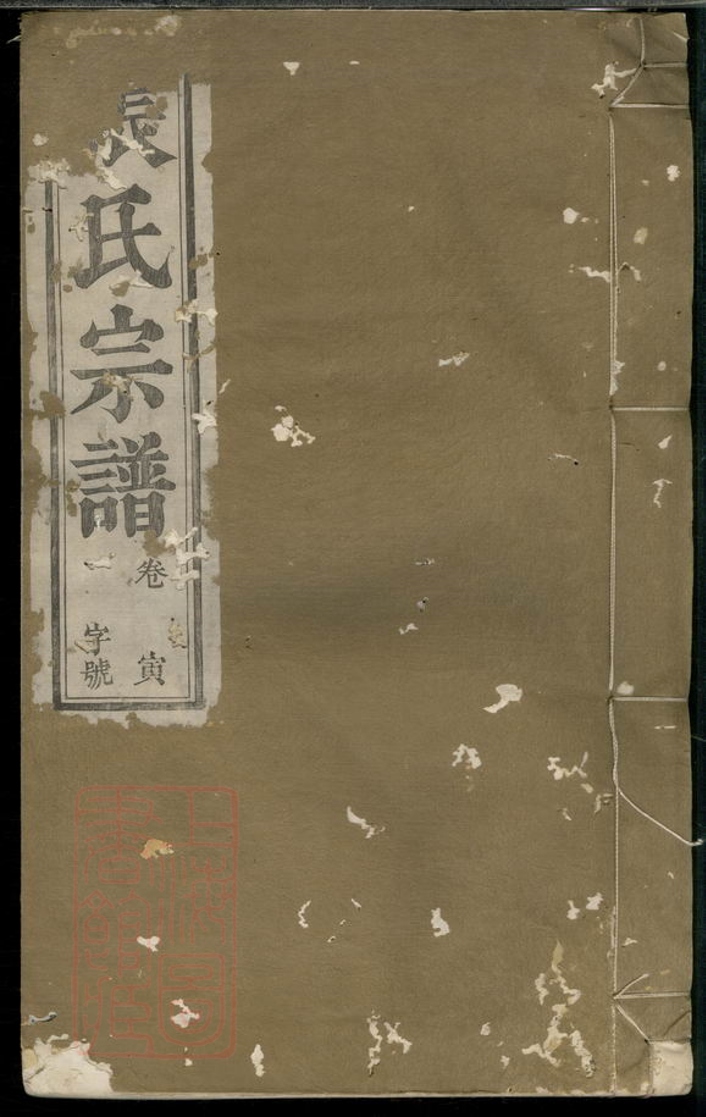 張氏宗譜
卷一
寅字號
上海圖
書館藏